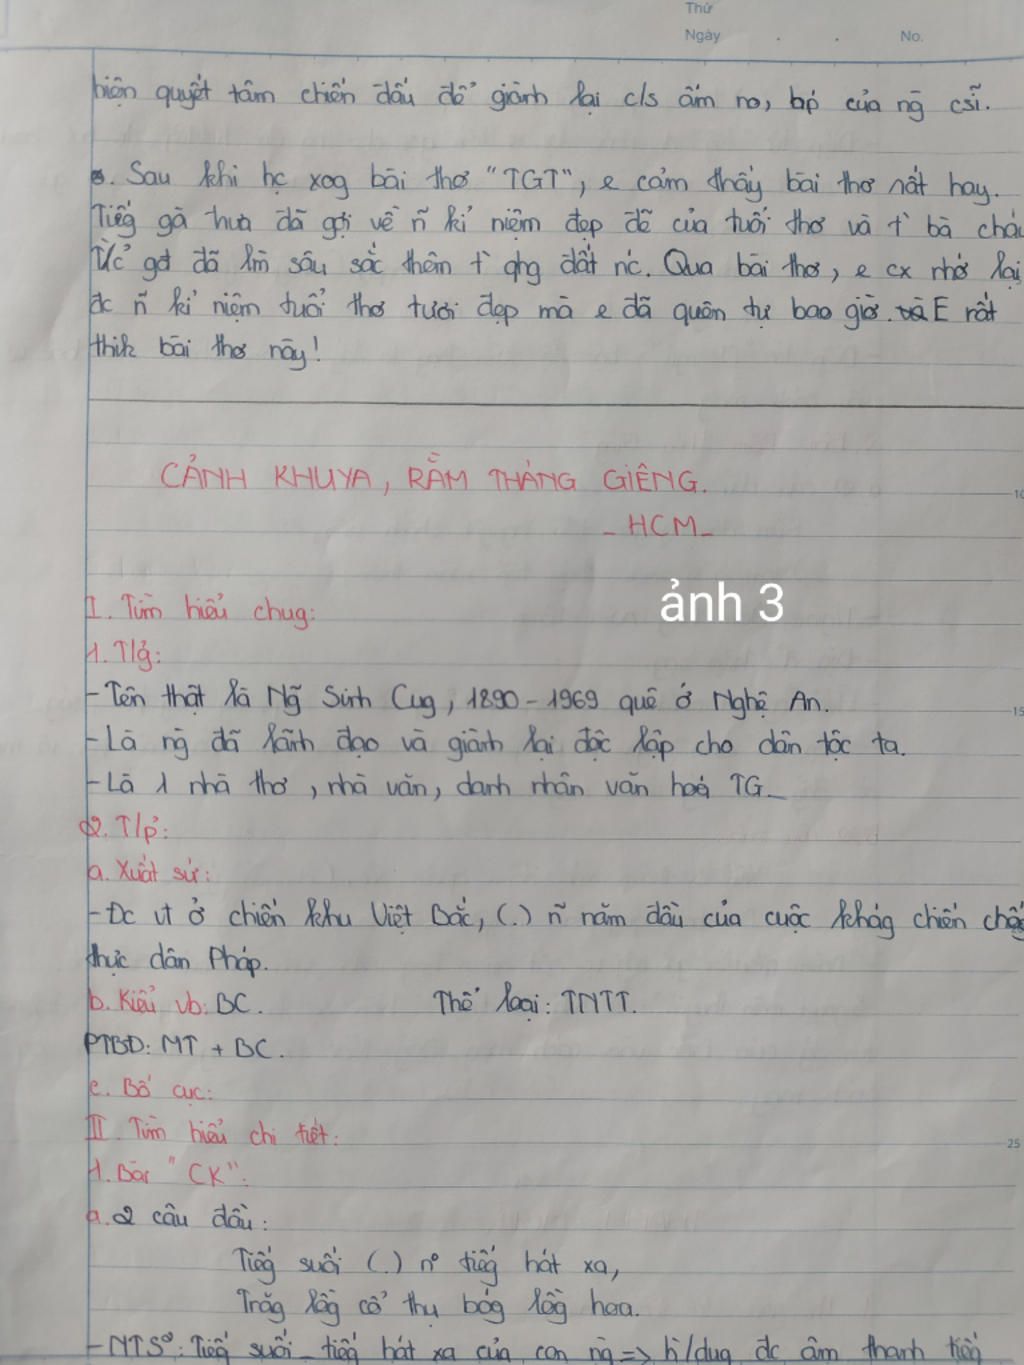 Thứ
Ngày . . No.
hiện quyết tâm chiến đấu để giành lại c/s ấm no, hp của ng̀ csĩ.
. Sau khi hc xog bài thơ "TGT", e cảm thấy bài thơ rất hay.
Tiếg gà trưa đã gợi về ñ kỉ niệm đẹp đẽ của tuổi thơ và t̀ bà cháu
T/c gđ đã lm̀ sâu sắc thêm t̀ qhg đất nc. Qua bài thơ, e cx nhớ lại
đc ñ kỉ niệm tuổi thơ tươi đẹp mà e đã quên tự bao giờ. E rất
thik bài thơ này!
CẢNH KHUYA, RẰM THÁNG GIÊNG.
10
_ HCM _
ảnh 3
I. Tìm hiểu chug:
1. T/g̉:
- Tên thật là Ng̃ Sinh Cug, 1890 - 1969 quê ở Nghệ An.
15
- Là ng̀ đã lãnh đạo và giành lại độc lập cho dân tộc ta.
- Là 1 nhà thơ, nhà văn, danh nhân văn hoá TG_
2. T/p̉:
a. Xuất sứ:
- Đc vt ở chiến khu Việt Bắc, (.) ñ năm đầu của cuộc khág chiến chốg
thực dân Pháp.
b. Kiểu vb: BC. Thể loại: TNTT.
PTBĐ: MT + BC.
c. Bố cục:
II. Tìm hiểu chi tiết:
25
1. Bài "CK":
a. 2 câu đầu:
Tiếg suối (.) nº tiếg hát xa,
Trăg lồg cổ thụ bóg lồg hoa.
- NTSº: Tiếg suối _ tiếg hát xa của con ng̀ => h̀/dug đc âm thanh tiếg